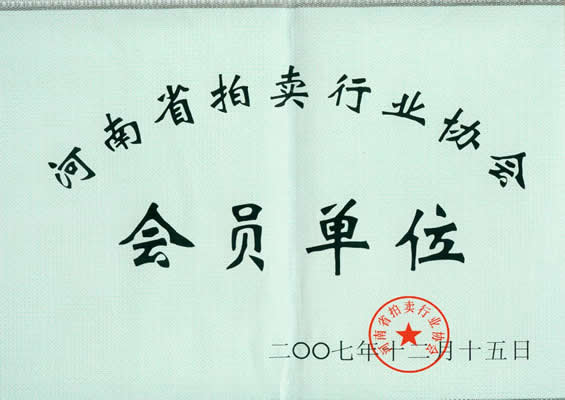 河南省拍卖行业协会
会员单位
河南省拍卖行业协会
二〇〇七年十二月十五日